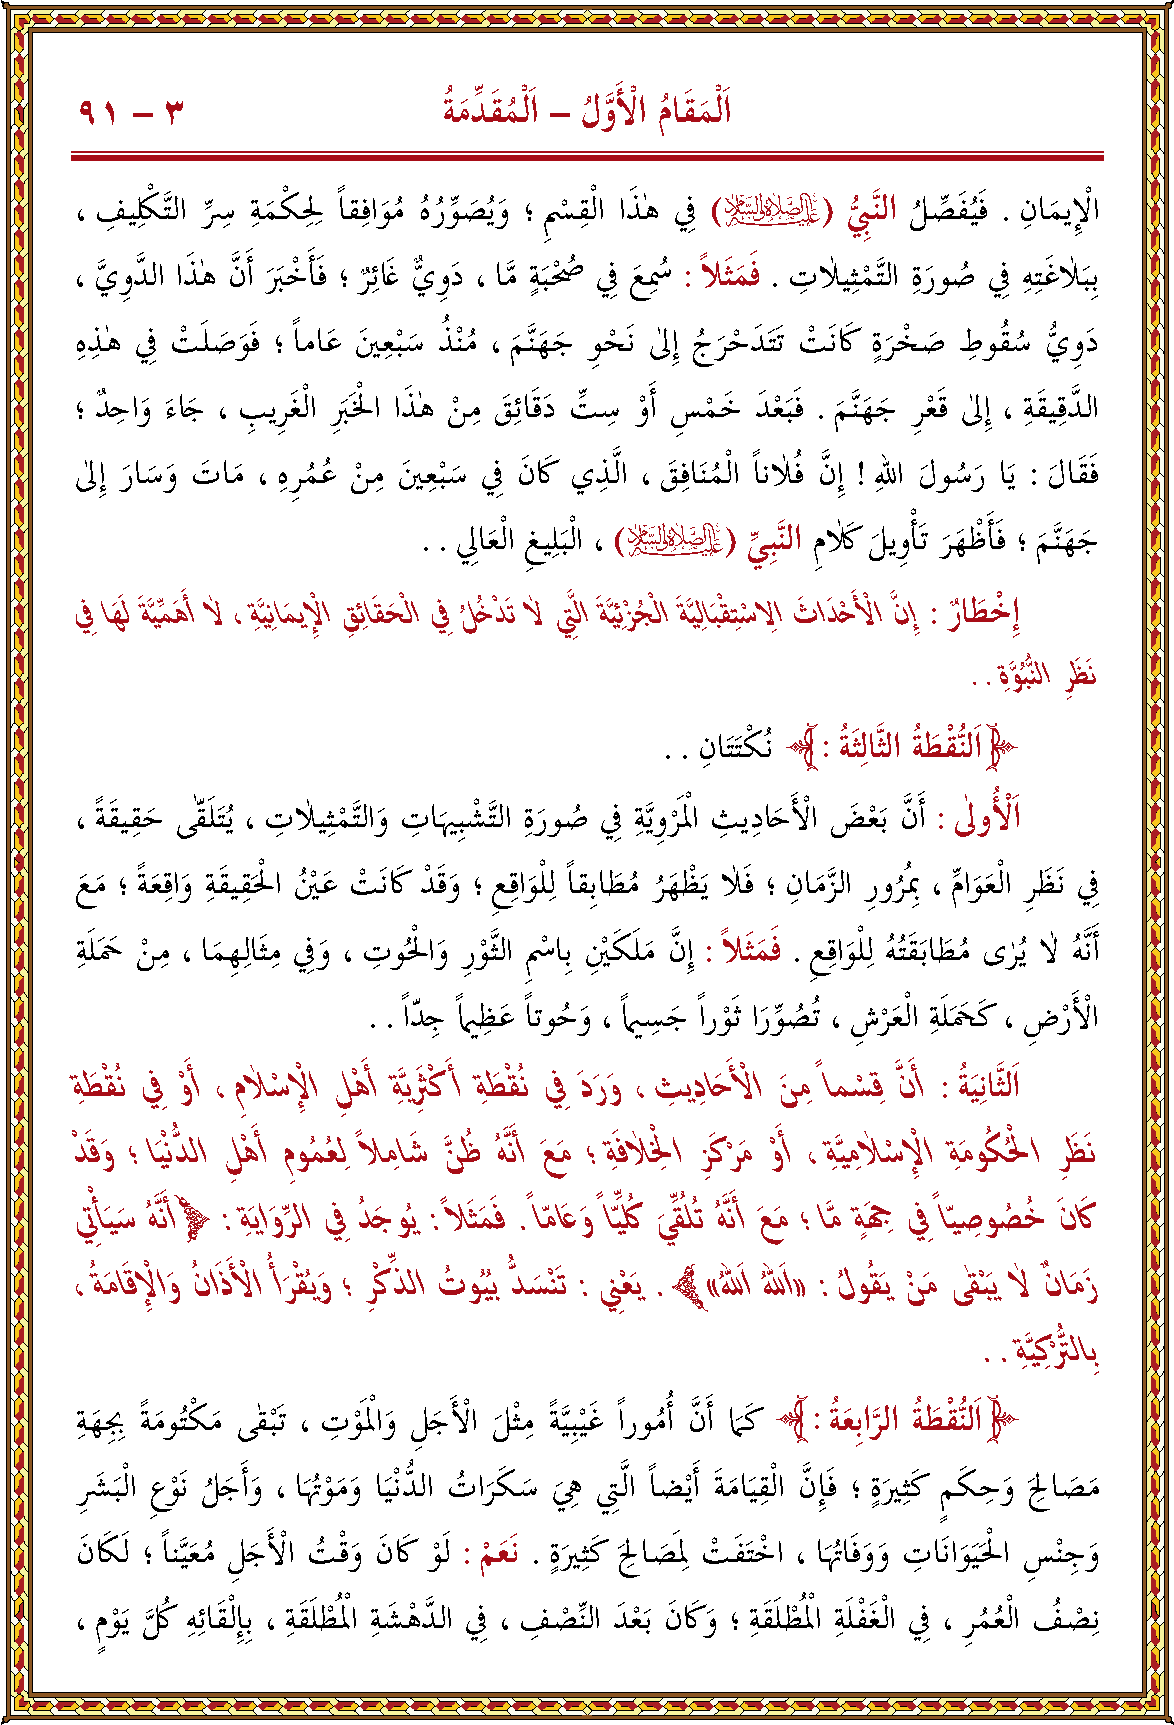 اَلْمَقَامُ الْأَوَّلُ – اَلْمُقَدِّمَةُ
٣ – ٩١
الْإِيمَانِ . فَيُفَصِّلُ النَّبِيُّ (عليه الصلاة والسلام) فِي هٰذَا الْقِسْمِ ؛ وَيُصَوِّرُهُ مُوَافِقاً لِحِكْمَةِ سِرِّ التَّكْلِيفِ ،
بِبَلَاغَتِهِ فِي صُورَةِ التَّمْثِيلَاتِ . فَمَثَلاً : سُمِعَ فِي صُحْبَةٍ مَّا ، دَوِيٌّ غَائِرٌ ؛ فَأَخْبَرَ أَنَّ هٰذَا الدَّوِيَّ ،
دَوِيُّ سُقُوطِ صَخْرَةٍ كَانَتْ تَتَدَحْرَجُ إِلىٰ نَحْوِ جَهَنَّمَ ، مُنْذُ سَبْعِينَ عَاماً ؛ فَوَصَلَتْ فِي هٰذِهِ
الدَّقِيقَةِ ، إِلىٰ قَعْرِ جَهَنَّمَ . فَبَعْدَ خَمْسِ أَوْ سِتِّ دَقَائِقَ مِنْ هٰذَا الْخَبَرِ الْغَرِيبِ ، جَاءَ وَاحِدٌ ؛
فَقَالَ : يَا رَسُولَ اللهِ ! إِنَّ فُلَاناً الْمُنَافِقَ ، الَّذِي كَانَ فِي سَبْعِينَ مِنْ عُمُرِهِ ، مَاتَ وَسَارَ إِلىٰ
جَهَنَّمَ ؛ فَأَظْهَرَ تَأْوِيلَ كَلَامِ النَّبِيِّ (عليه الصلاة والسلام) ، الْبَلِيغِ الْعَالِي . .
إِخْطَارٌ : إِنَّ الْأَحْدَاثَ الِاسْتِقْبَالِيَّةَ الْجُزْئِيَّةَ الَّتِي لَا تَدْخُلُ فِي الْحَقَائِقِ الْإِيمَانِيَّةِ ، لَا أَهَمِّيَّةَ لَهَا فِي
نَظَرِ النُّبُوَّةِ . .
﴿اَلنُّقْطَةُ الثَّالِثَةُ :﴾ نُكْتَتَانِ . .
اَلْأُولىٰ : أَنَّ بَعْضَ الْأَحَادِيثِ الْمَرْوِيَّةِ فِي صُورَةِ التَّشْبِيهَاتِ وَالتَّمْثِيلَاتِ ، يُتَلَقّٰى حَقِيقَةً ،
فِي نَظَرِ الْعَوَامِّ ، بِمُرُورِ الزَّمَانِ ؛ فَلَا يَظْهَرُ مُطَابِقاً لِلْوَاقِعِ ؛ وَقَدْ كَانَتْ عَيْنُ الْحَقِيقَةِ وَاقِعَةً ؛ مَعَ
أَنَّهُ لَا يُرٰى مُطَابَقَتُهُ لِلْوَاقِعِ . فَمَثَلاً : إِنَّ مَلَكَيْنِ بِاسْمِ الثَّوْرِ وَالْحُوتِ ، وَفِي مِثَالِهِمَا ، مِنْ حَمَلَةِ
الْأَرْضِ ، كَحَمَلَةِ الْعَرْشِ ، تُصُوِّرَا ثَوْراً جَسِيماً ، وَحُوتاً عَظِيماً جِدّاً . .
اَلثَّانِيَةُ : أَنَّ قِسْماً مِنَ الْأَحَادِيثِ ، وَرَدَ فِي نُقْطَةِ أَكْثَرِيَّةِ أَهْلِ الْإِسْلَامِ ، أَوْ فِي نُقْطَةِ
نَظَرِ الْحُكُومَةِ الْإِسْلَامِيَّةِ ، أَوْ مَرْكَزِ الْخِلَافَةِ ؛ مَعَ أَنَّهُ ظُنَّ شَامِلاً لِعُمُومِ أَهْلِ الدُّنْيَا ؛ وَقَدْ
كَانَ خُصُوصِيّاً فِي جِهَةٍ مَّا ؛ مَعَ أَنَّهُ تُلُقِّيَ كُلِّيّاً وَعَامّاً . فَمَثَلاً : يُوجَدُ فِي الرِّوَايَةِ : ﴿أَنَّهُ سَيَأْتِي
زَمَانٌ لَا يَبْقٰى مَنْ يَقُولُ : «اَللهُ اَللهُ»﴾ . يَعْنِي : تَنْسَدُّ بُيُوتُ الذِّكْرِ ؛ وَيُقْرَأُ الْأَذَانُ وَالْإِقَامَةُ ،
بِالتُّرْكِيَّةِ . .
﴿اَلنُّقْطَةُ الرَّابِعَةُ :﴾ كَمَا أَنَّ أُمُوراً غَيْبِيَّةً مِثْلَ الْأَجَلِ وَالْمَوْتِ ، تَبْقٰى مَكْتُومَةً بِجِهَةِ
مَصَالِحَ وَحِكَمٍ كَثِيرَةٍ ؛ فَإِنَّ الْقِيَامَةَ أَيْضاً الَّتِي هِيَ سَكَرَاتُ الدُّنْيَا وَمَوْتُهَا ، وَأَجَلُ نَوْعِ الْبَشَرِ
وَجِنْسِ الْحَيَوَانَاتِ وَوَفَاتُهَا ، اخْتَفَتْ لِمَصَالِحَ كَثِيرَةٍ . نَعَمْ : لَوْ كَانَ وَقْتُ الْأَجَلِ مُعَيَّناً ؛ لَكَانَ
نِصْفُ الْعُمُرِ ، فِي الْغَفْلَةِ الْمُطْلَقَةِ ؛ وَكَانَ بَعْدَ النِّصْفِ ، فِي الدَّهْشَةِ الْمُطْلَقَةِ ، بِإِلْقَائِهِ كُلَّ يَوْمٍ ،